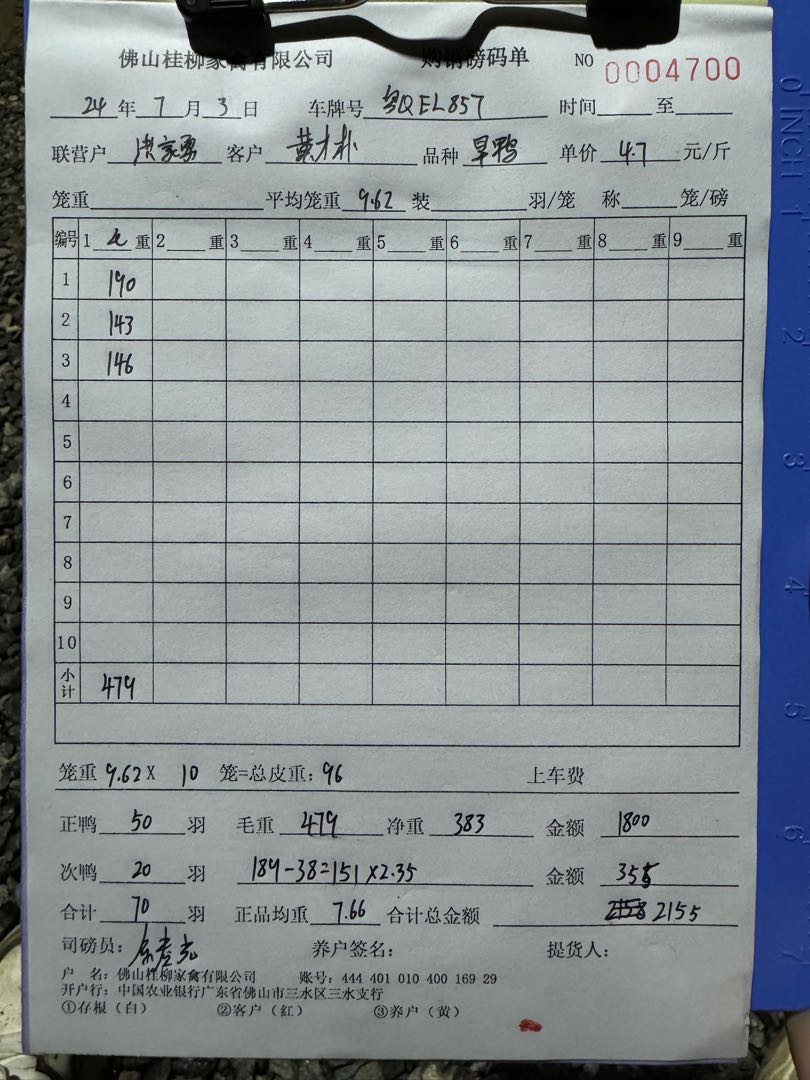 佛山桂柳家禽有限公司 购销磅码单 NO 0004700
24 年 7 月 3 日 车牌号 粤QEL857 时间 至
联营户 洪家勇 客户 黄才朴 品种 旱鸭 单价 4.7 元/斤
笼重 平均笼重 9.62 装 羽/笼 称 笼/磅
编号 1 重 2 重 3 重 4 重 5 重 6 重 7 重 8 重 9 重
1 190
2 143
3 146
4
5
6
7
8
9
10
小计 479
笼重 9.62 X 10 笼=总皮重: 96 上车费
正鸭 50 羽 毛重 479 净重 383 金额 1800
次鸭 20 羽 189-38=151X2.35 金额 355
合计 70 羽 正品均重 7.66 合计总金额 2155
司磅员: 养户签名: 提货人:
户 名: 佛山桂柳家禽有限公司 账号: 444 401 010 400 169 29
开户行: 中国农业银行广东省佛山市三水区三水支行
①存根(白) ②客户(红) ③养户(黄)
0 INCH 1 2 3 4 5 6 7